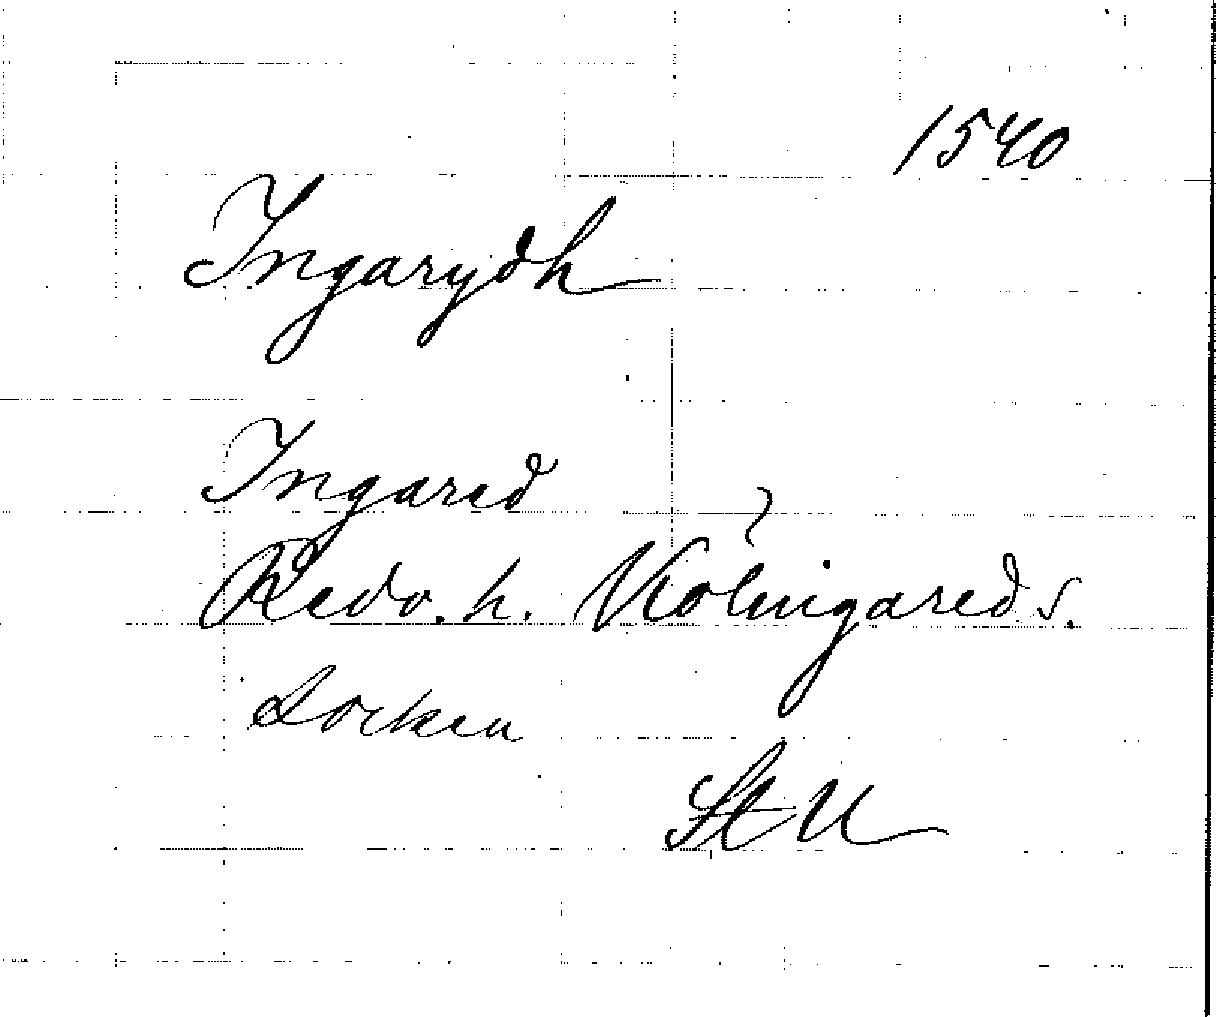 1540
Ingarydh
Ingared
Redv. h. Kölingareds s.
Locken
St U